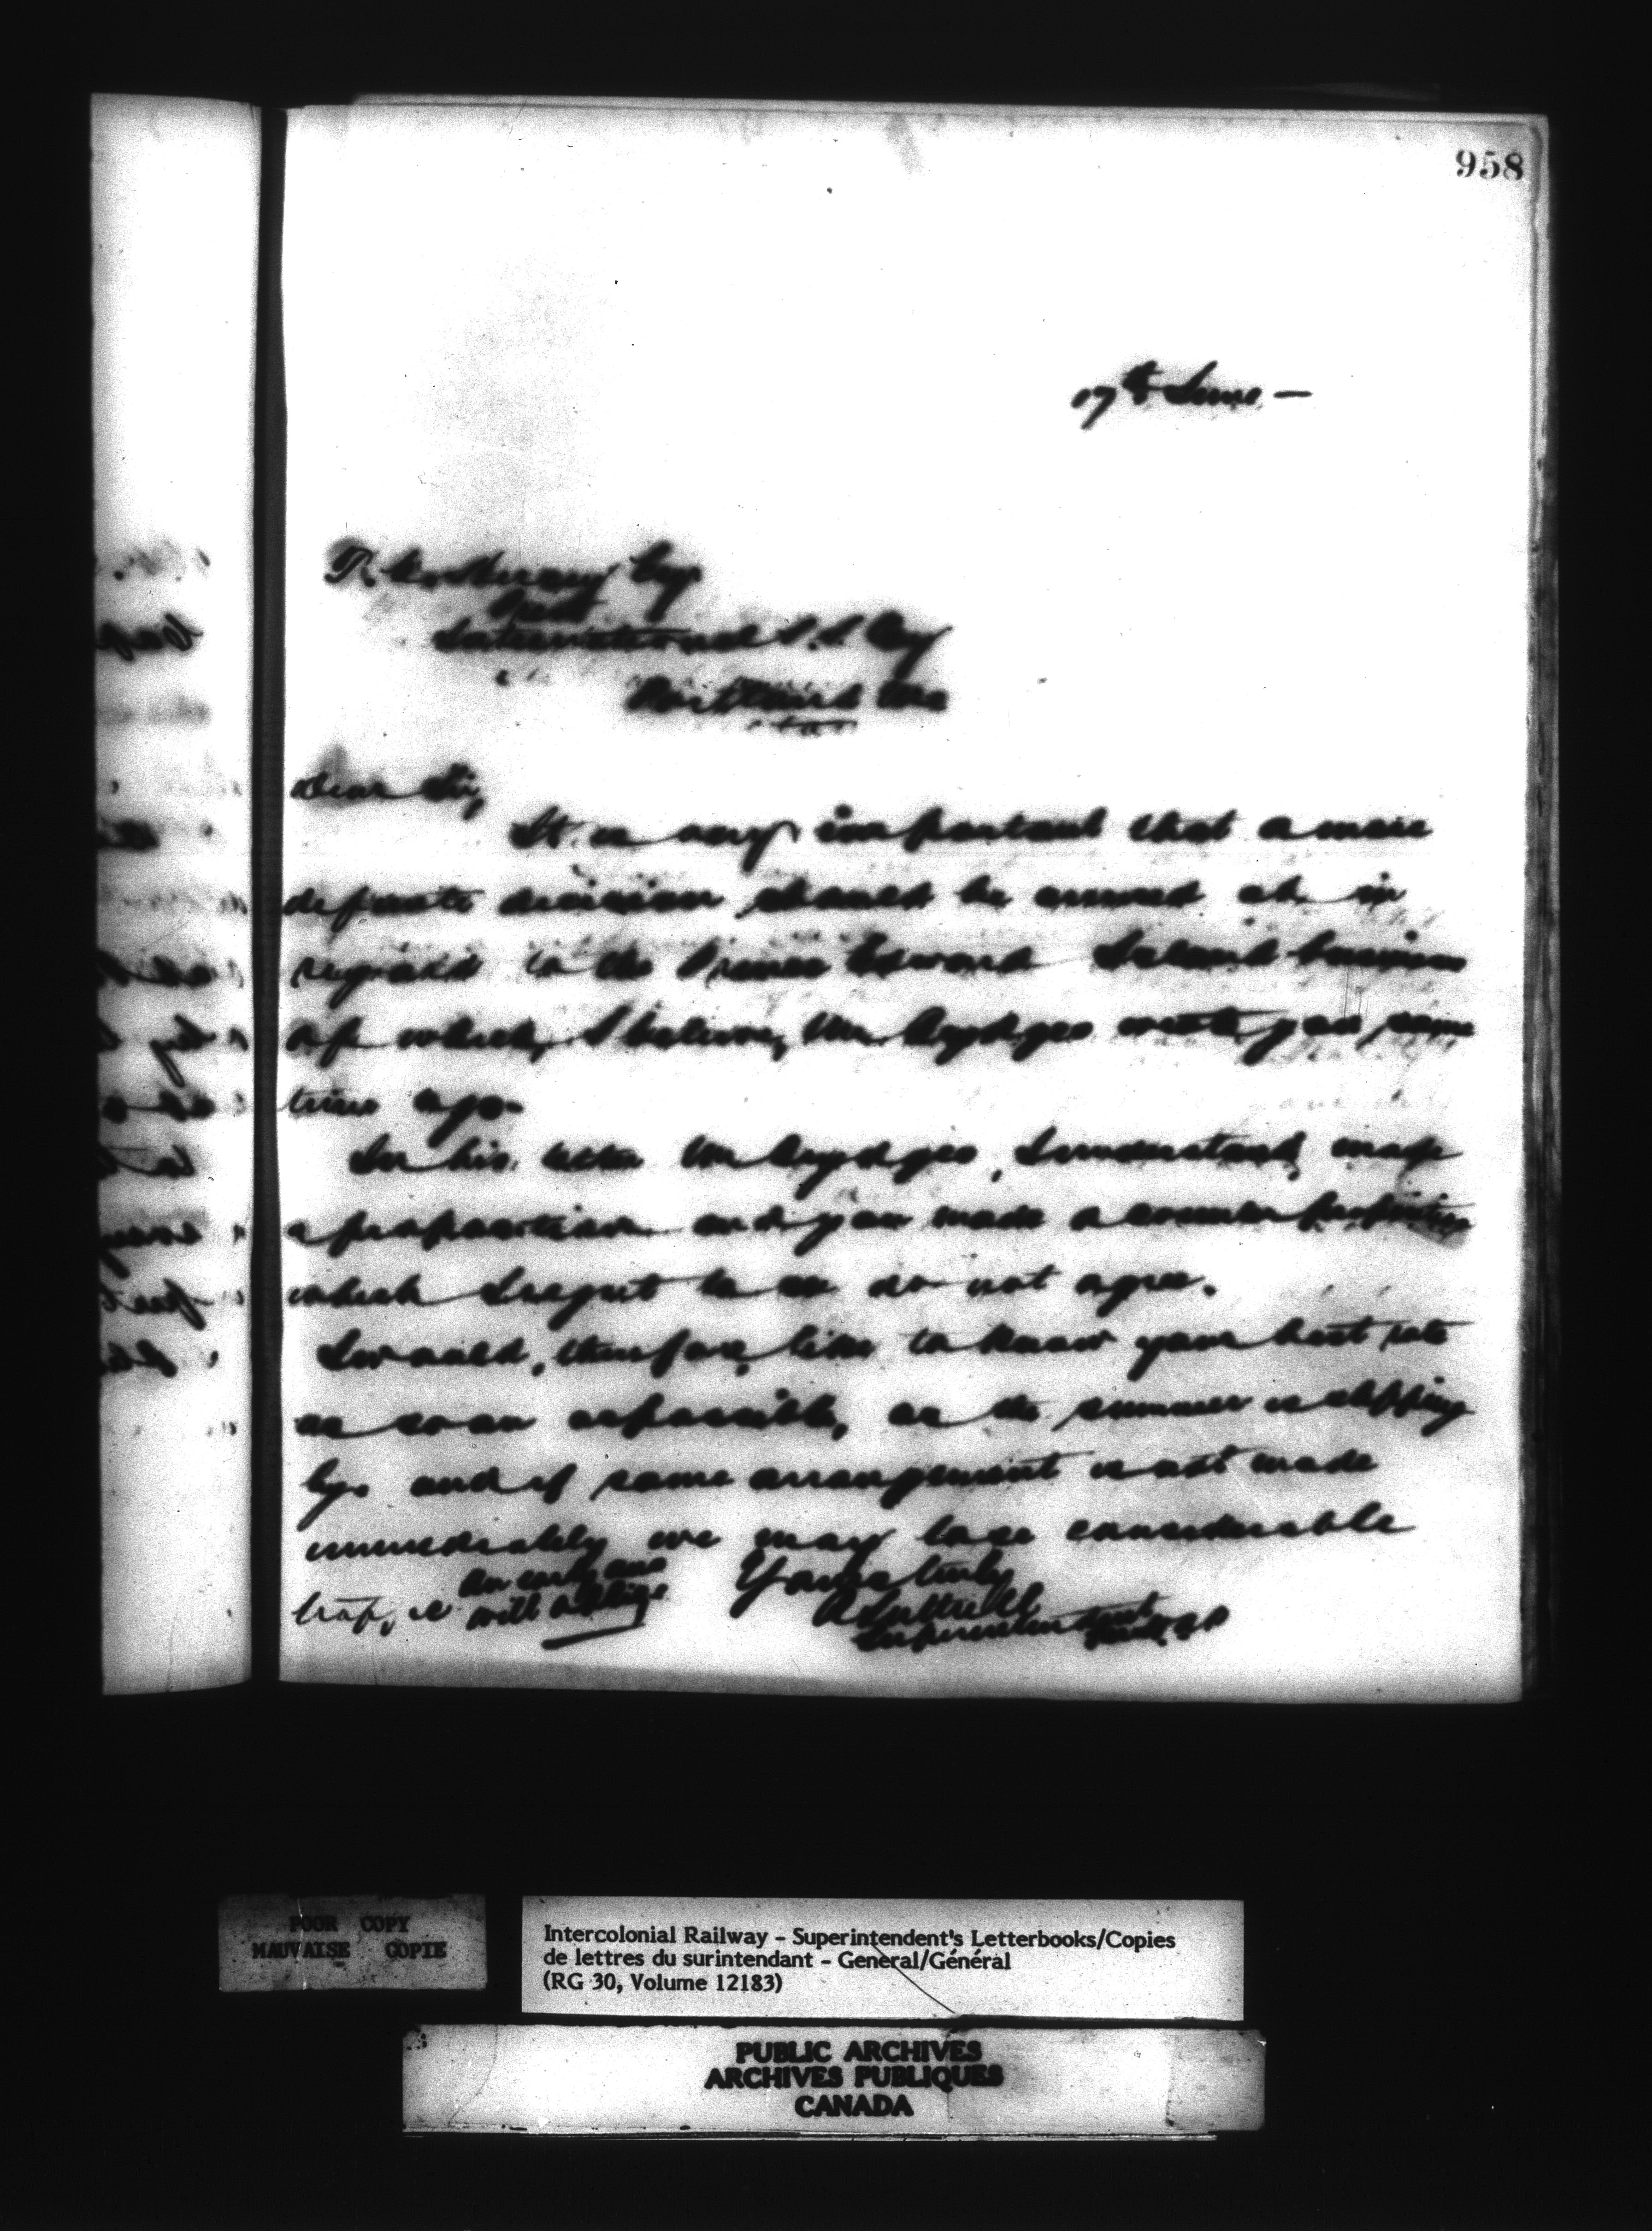 958
17th June —
T. C. Hersey Esq
Prest
International S.S. Coy
Portland Me
Dear Sir,
It is very important that a more
definite decision should be arrived at in
regard to the Prince Edward Island business
of which, I believe, Mr Brydges wrote you some
time ago.
In his letter Mr Brydges, I understand, made
a proposition and you made a counter proposition
which I regret to do not agree.
I would, therefore, like to know your best rate
as soon as possible, as the summer is slipping
by and if some arrangement is not made
immediately we may lose considerable
traffic
An early ans
will oblige
Yours truly
A Luttrell
Superintendent
POOR COPY
MAUVAISE COPIE
Intercolonial Railway - Superintendent's Letterbooks/Copies
de lettres du surintendant - General/Général
(RG 30, Volume 12183)
PUBLIC ARCHIVES
ARCHIVES PUBLIQUES
CANADA